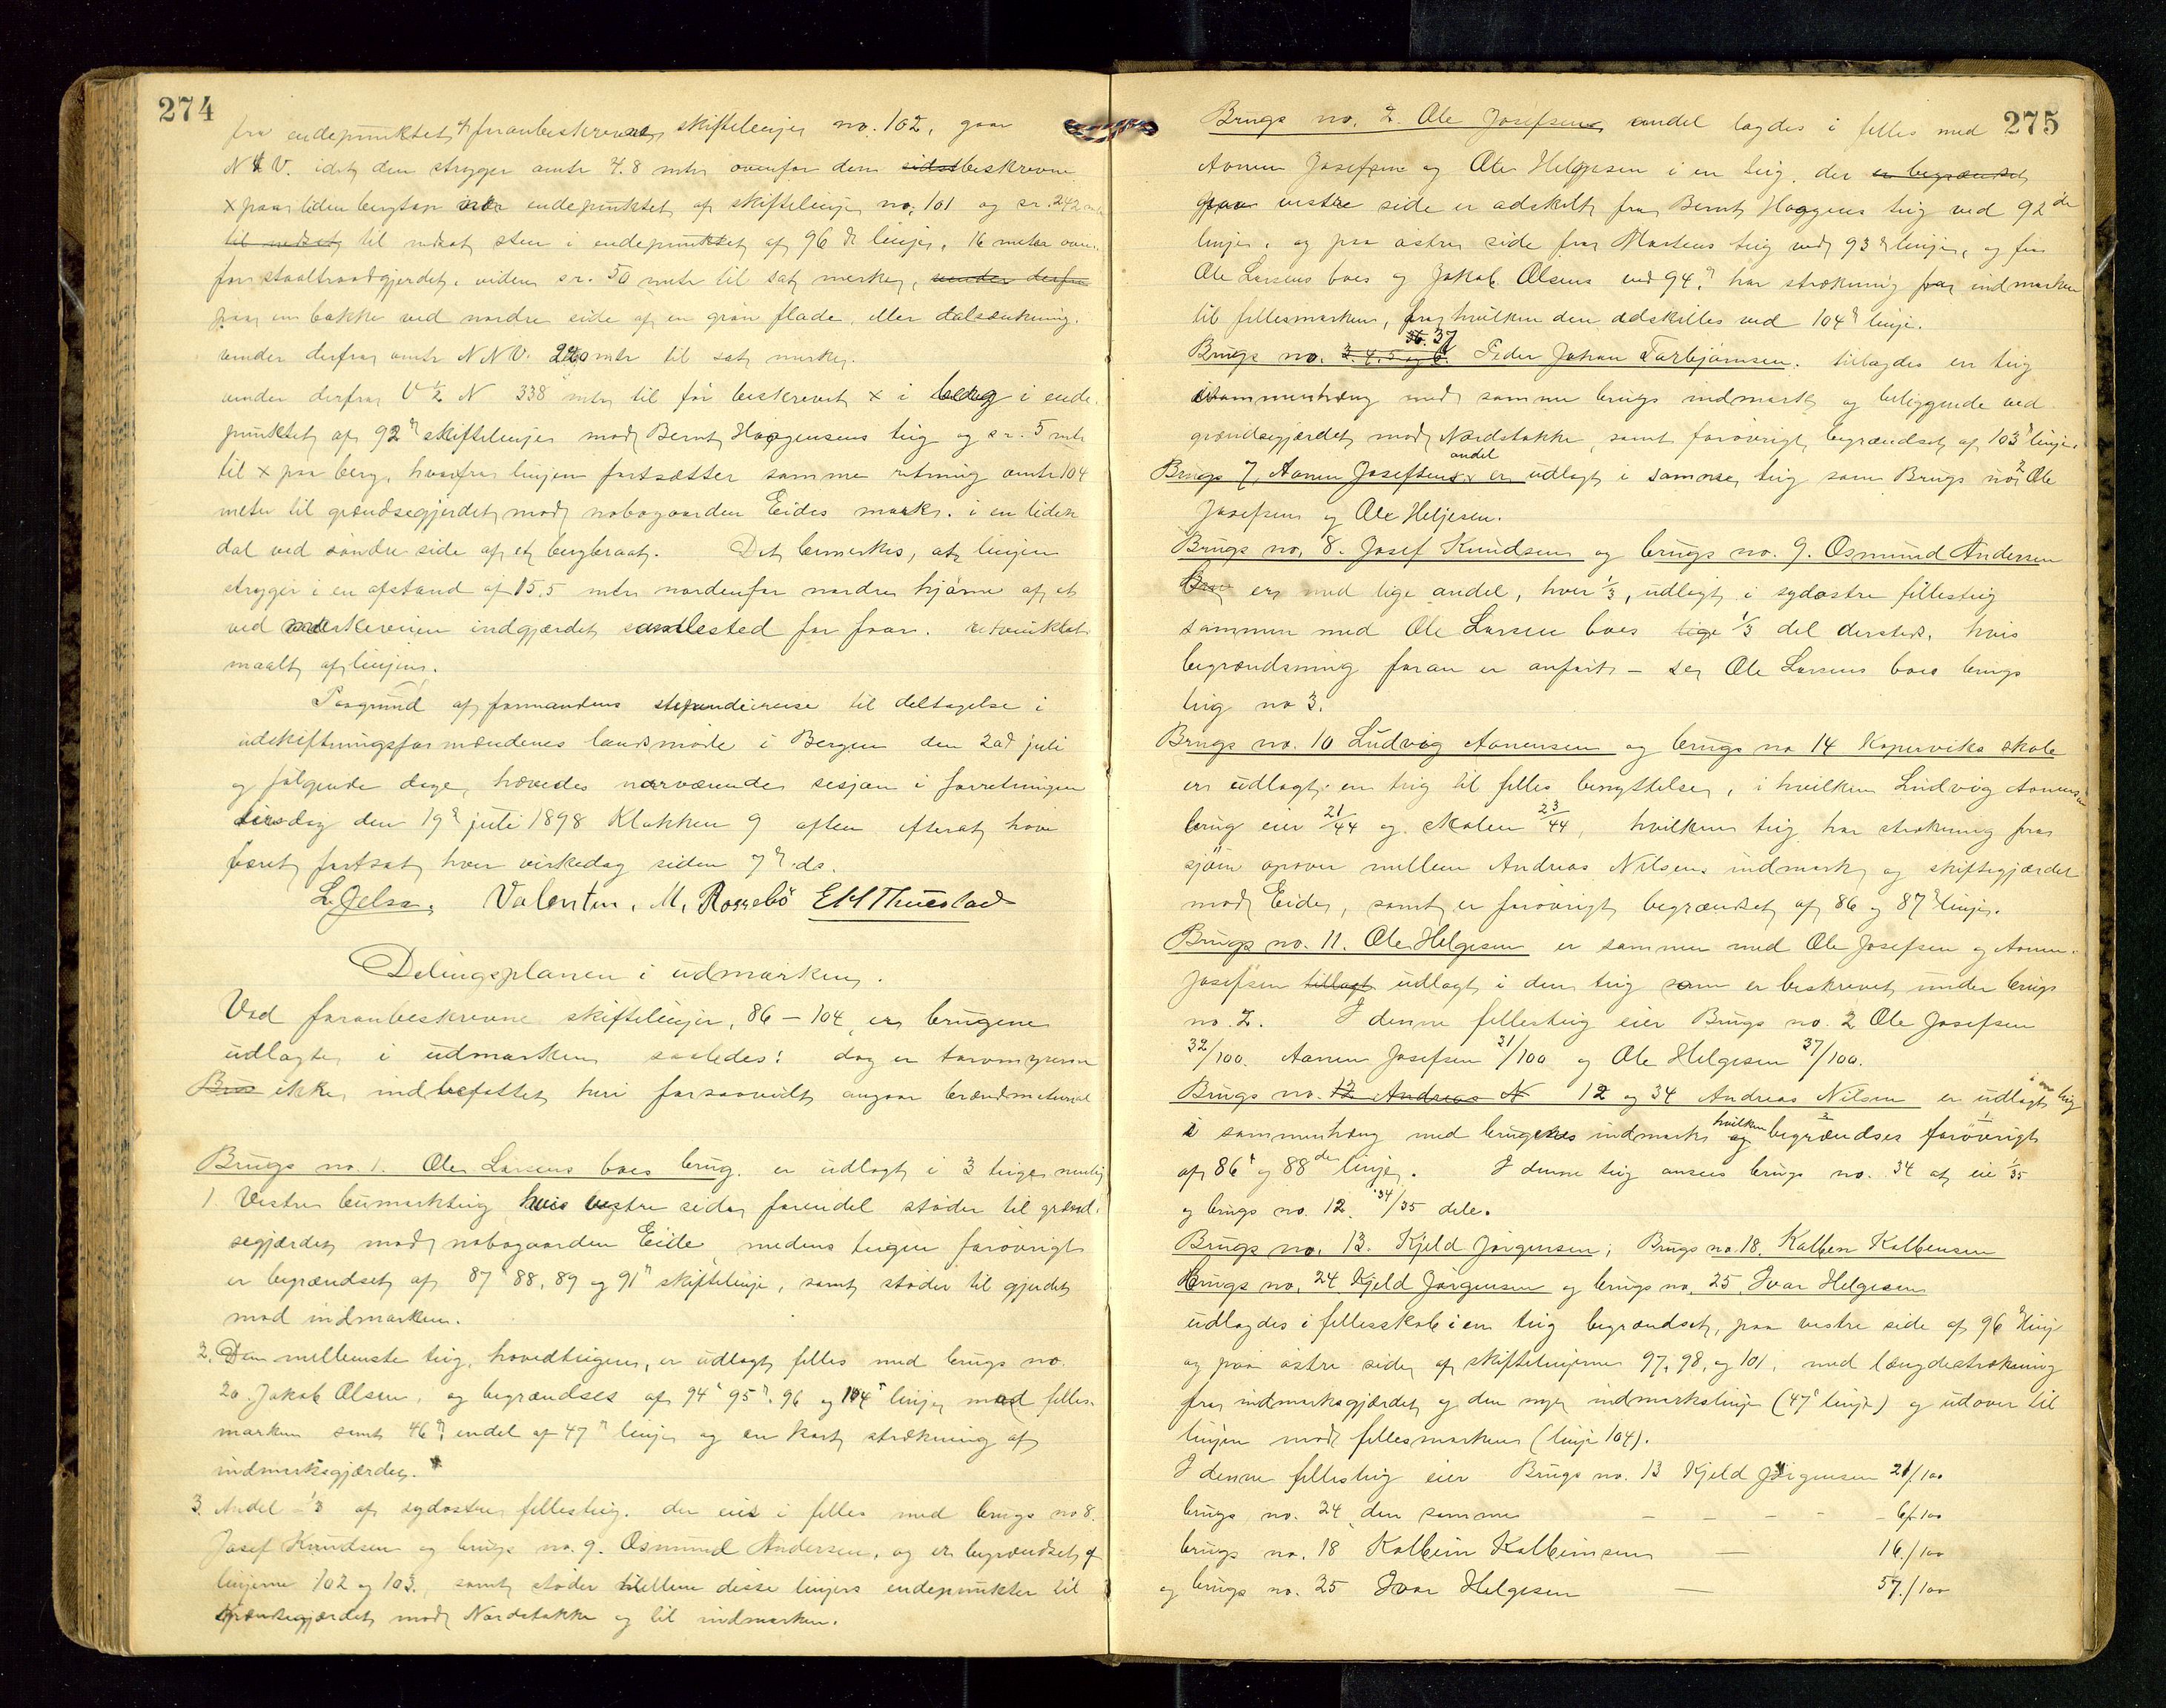 274
fra endepunktet af foranbeskrevne skiftelinje no. 102, gaar
N t V. idet den stryger omtr 4.8 mtr ovenfor den sidst beskrevne
x paa liden bergtop endepunktet af skiftelinje no. 101 og er. 242
til nedsat til nedsat sten i endepunktet af 96 d linje, 16 meter oven-
for staaltraadgjerdet, videre er. 50 mtr til sat merke, vender derfra
paa en bakke ved nordre side af en grøn flade, eller dalsænkning.
vender derfra omtr N N V. 220 mtr til sat merke.
vender derfra V ½ N 338 mtr til før beskrevet x i berg i ende-
punktet af 92 d skiftelinje mod Bernt Haagensens teig og er. 5 mtr
til x paa berg, hvorfra linjen fortsætter samme retning omtr 104
meter til grændsegjerdet mod nabogaarden Eides mark. i en liden
dal ved søndre side af et bergbraat. Det bemerkes, at linjen
stryger i en afstand af 15.5 mtr nordenfor nordre hjørne af et
ved markeveien indgjærdet samlested for faar. retvinklet
maalt af linjen.
Paagrund af formandens stipendiereise til deltagelse i
udskiftningsformændenes landsmøde i Bergen den 20d juli
og følgende dage, hævedes nærværende sesjon i forretningen
tirsdag den 19d juli 1898 Klokken 9 aften efterat have
været fortsat hver virkedag siden 7d ds.
L. Jelsa. Valentin. M. Rossebø EM Thuestad
Delingsplanen i udmarken.
Ved foranbeskrevne skiftelinjer, 86 – 104, er brugene
udlagte i udmarken saaledes: dog er torvmyrerne
Brus ikke indbefattet heri forsaavidt angaar brændmaterial
Brugs no. 1. Ole Larsens boes brug. er udlagt i 3 teiger nemlig
1. Vestre bumarkteig hvis vestre side forendel støder til grænd-
segjærdet mod nabogaarden Eide medens teigen forøvrigt
er begrændset af 87d 88, 89 og 91d skiftelinje, samt støder til gjerdet
mod indmarken.
2. Den mellemste teig, hovedteigen, er udlagt felles med brugs no.
20. Jakob Olsen, og begrændses af 94d 95d. 96 og 104d linje mod felles-
marken samt 46d, endel af 47d linje og en kort strækning af
indmarksgjærdet.
3. Andel ⅓ af sydøstre fellesteig. der eies i felles med brugs no 8.
Josef Knudsen og brugs no. 9. Osmund Andersen, og er begrændset af
linjerne 102 og 103., samt støder mellem disse linjers endepunkter til
grændsegjærdet mod Nordstokke og til indmarken.
275
Brugs no. 2. Ole Josefsens andel lagdes i felles med
Aanen Josefsen og Ole Helgesen i en teig. der er begrændset
paa vestre side er adskilt fra Bernt Haagens teig ved 92 de
linje, og paa østre side fra Mortens teig ved 93 d linje, og fra
Ole Larsens boes og Jakob Olsens ved 94.d har strækning fra indmarken
til fellesmarken, fra hvilken den adskilles ved 104d linje.
36. 37
Brugs no. 3. 4. 5 og 6. Peder Johan Torbjørnsen. tillagdes en teig
i sammenhæng med samme brugs indmark og beliggende ved
grændsegjærdet mod Nordstokke, samt forøvrigt begrændset af 103d linje.
Brugs 7. Aanen Josefsens andel er udlagt i samme teig som Brugs no 2 Ole
Josefsen og Ole Heljesen.
Brugs no. 8. Josef Knudsen og brugs no. 9. Osmund Andersen
er med lige andel, hver ⅓, udlagt i sydøstre fellesteig
sammen med Ole Larsens boes lige ⅓ del dersteds, hvis
begrændsning foran er anført – se Ole Larsens boes brugs
teig no 3.
Brugs no. 10 Ludvig Aanensen og brugs no 14 Kopervik skole
er udlagt en teig til felles benyttelse, i hvilken Ludvig Aanensen
brug eier 21/44 og skolen 23/44, hvilken teig har strækning fra
sjøen opover mellem Andreas Nilsens indmark og skiftegjærdet
mod Eide, samt er forøvrigt begrændset af 86 og 87d linje.
Brugs no. 11. Ole Helgesen er sammen med Ole Josefsen og Aanen
Josefsen tillagt udlagt i den teig som er beskrevet under brugs
no. 2. I denne fellesteig eier Brugs no. 2 Ole Josefsen
32/100. Aanen Josefsen 31/100 og Ole Helgesen 37/100.
Brugs no. 12 Andreas N 12 og 34 Andreas Nilsen er udlagt i en teig
i sammenhæng med brugenes indmark og hvilken begrændses forøvrigt
af 86d og 88de linje. I denne teig ansees brugs no. 34 at eie 1/35
og brugs no. 12. 34/35 dele.
Brugs no. 13. Kjeld Jørgensen; Brugs no. 18. Kolben Kolbensen
Brugs no. 24 Kjeld Jørgensen og brugs no. 25. Ivar Helgesen
udlagdes i fellesskab i en teig begrændset, paa vestre side af 96 d linje
og paa østre side af skiftelinjerne 97, 98, og 101, med længdestrækning
fra indmarksgjærdet og den nye indmarkslinje (47d linje) og udover til
linjen mod fellesmarken (linje 104).
I denne fellesteig eier Brugs no. 13 Kjeld Jørgensen 21/100
brugs no. 24 den samme – – – – – 6/100
brugs no. 18 Kolbein Kolbeinsen — 16/100
og brugs no. 25 Ivar Helgesen — 57/100